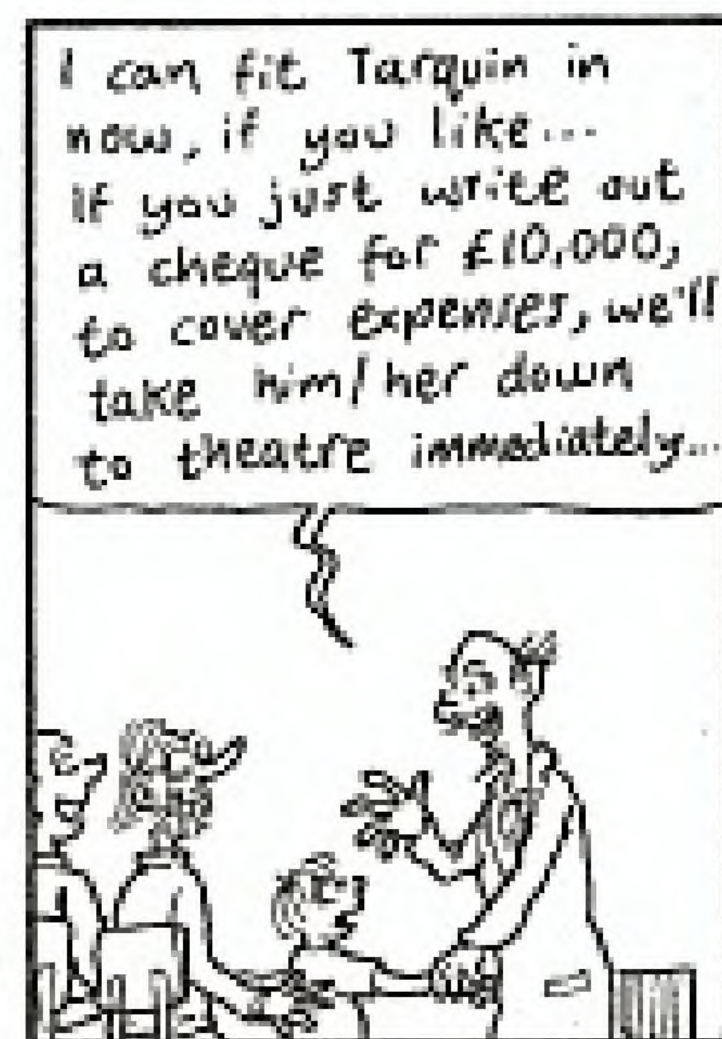 I can fit Tarquin in
now, if you like...
If you just write out
a cheque for £10,000,
to cover expenses, we'll
take him/her down
to theatre immediately...